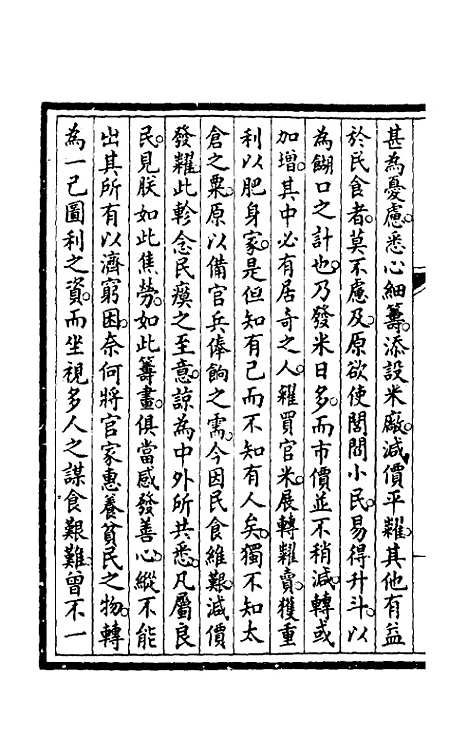 甚為憂慮。悉心細籌。添設米廠。減價平糶。其他有益
於民食者。莫不慮及。原欲使閭閻小民。易得升斗。以
為餬口之計也。乃發米日多。而市價並不稍減。轉或
加增。其中必有居奇之人。糴買官米。展轉糶賣。獲重
利以肥身家。是但知有己而不知有人矣。獨不知太
倉之粟。原以備官兵俸餉之需。今因民食維艱。減價
發糶。此軫念民瘼之至意。諒為中外所共悉。凡屬良
民。見朕如此焦勞。如此籌畫。俱當感發善心。縱不能
出其所有以濟窮困。奈何將官家惠養貧民之物。轉
為一己圖利之資。而坐視多人之謀食艱難。曾不一